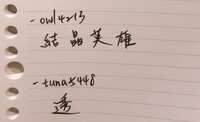 - owl4213
結晶英雄
- tuna5448
透